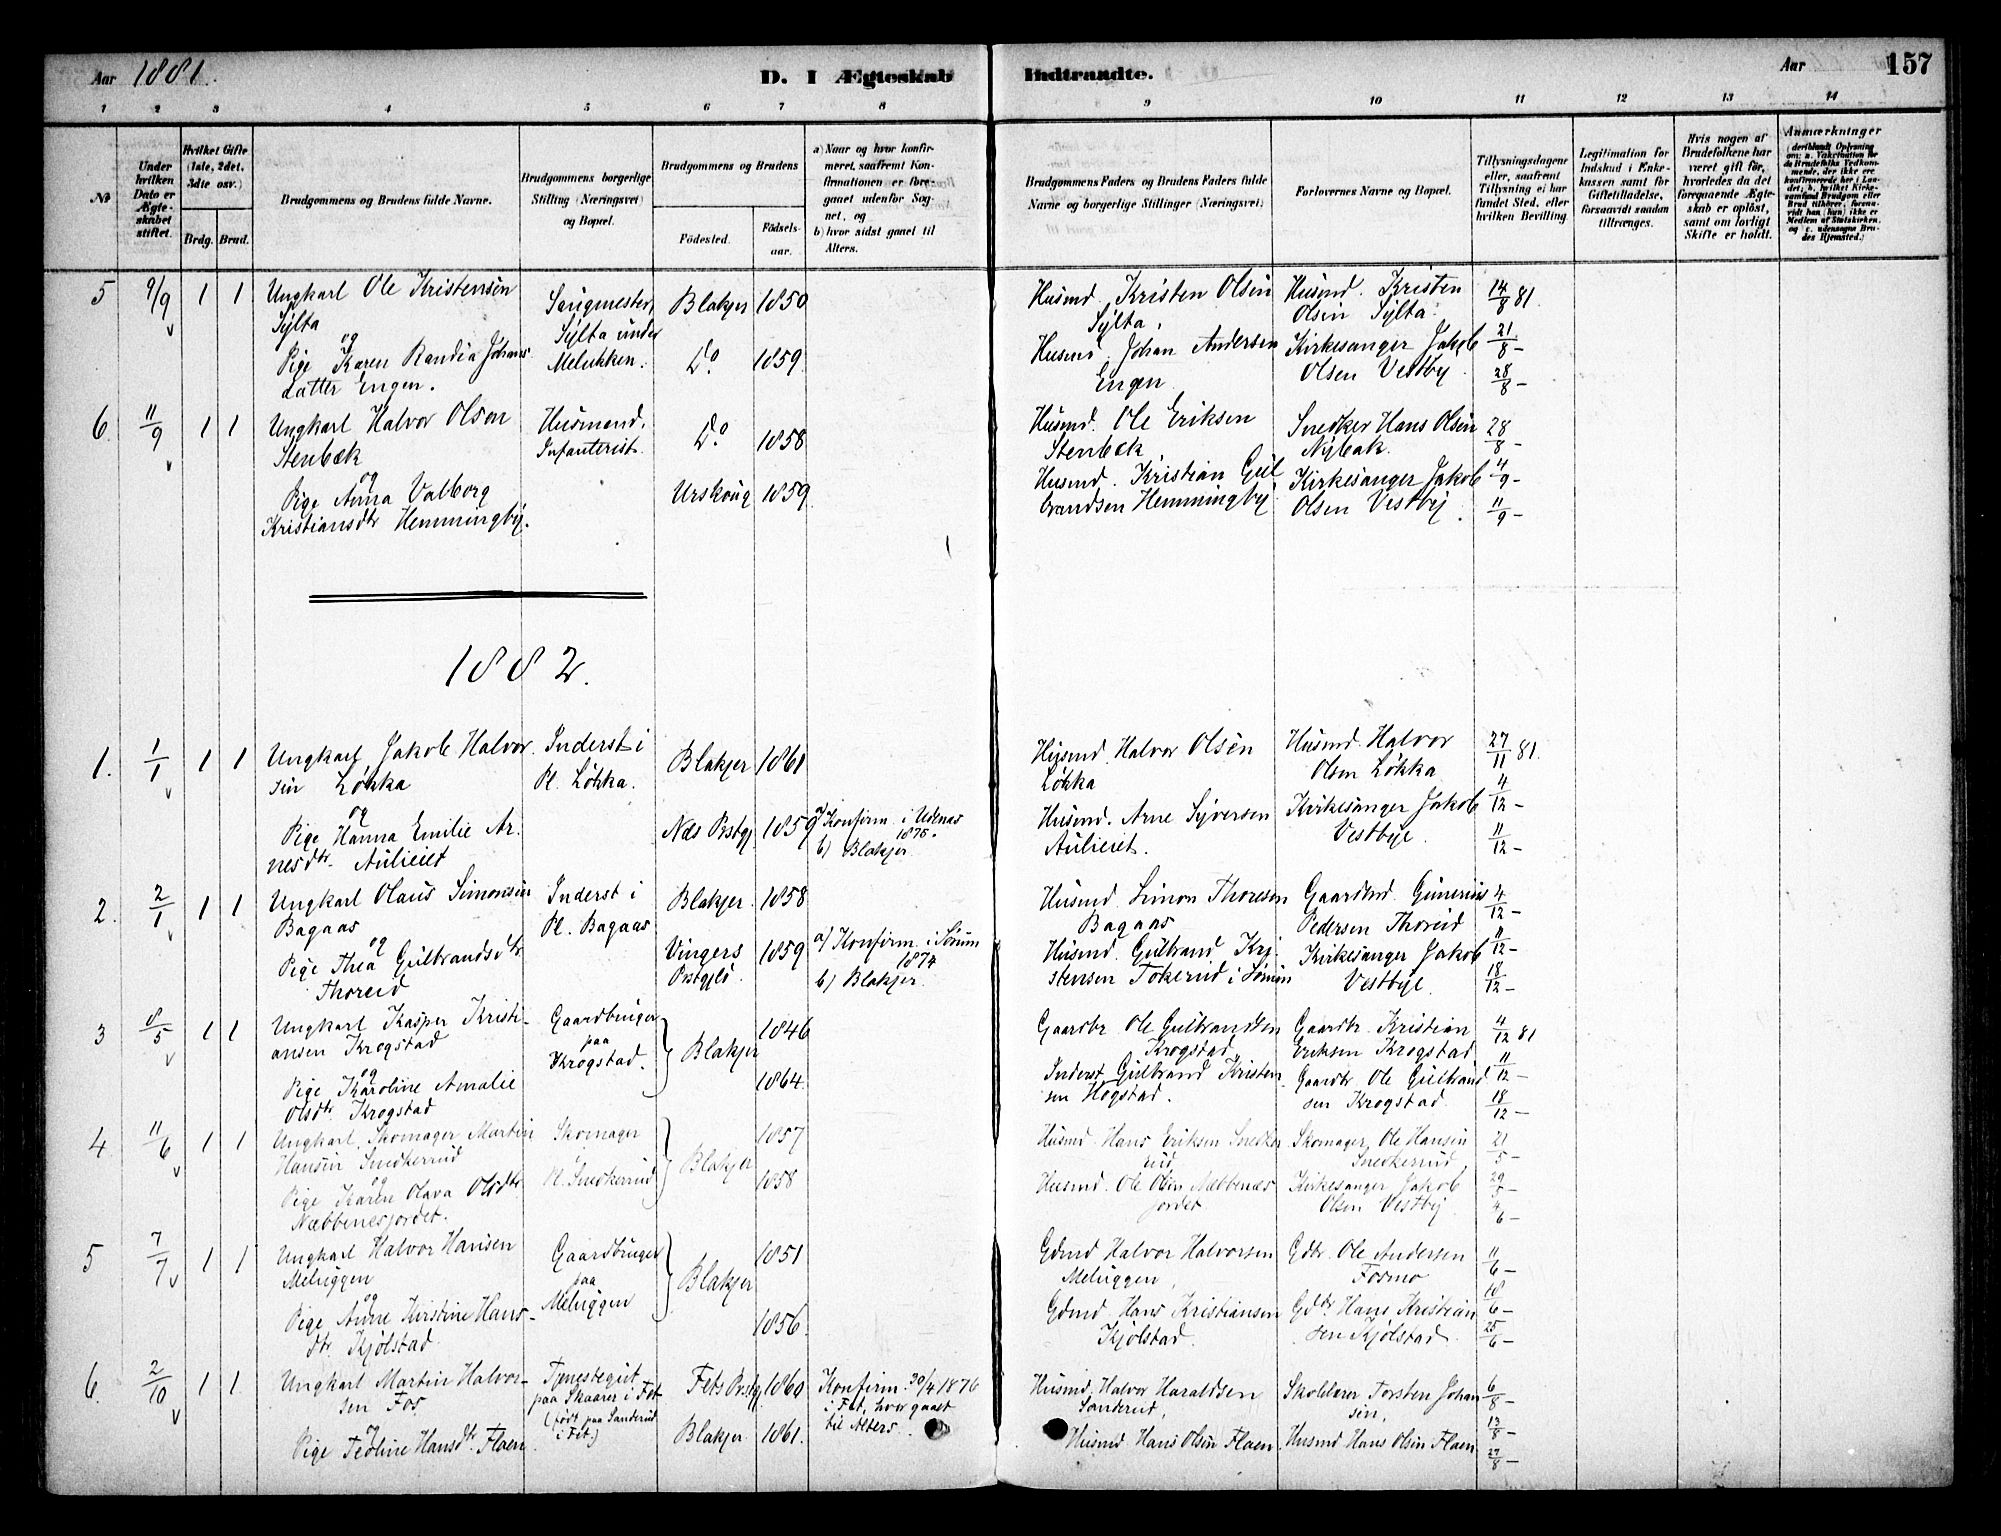 Aar 1881.
D. I Ægteskab Indtraadte.
Aar
157
1 2 3 4 5 6 7 8 9 10 11 12 13 14
No
Under hvilken Dato er Ægteskabet stiftet.
Hvilket Gifte (1ste, 2det, 3die osv.)
Brdg. Brud.
Brudgommens og Brudens fulde Navne.
Brudgommens borgerlige Stilling (Næringsvei) og Bopæl.
Brudgommens og Brudens
Födested.
Födselsaar.
a) Naar og hvor konfirmeret, saafremt Konfirmationen er foregaaet udenfor Sognet, og
b) hvor sidst gaaet til Alters.
Brudgommens Faders og Brudens Faders fulde Navne og borgerlige Stillinger (Næringsvei)
Forlovernes Navne og Bopæl.
Tillysningsdagene eller, saafremt Tillysning ei har fundet Sted, efter hvilken Bevilling.
Legitimation for Indskud i Enkekassen samt for Giftetilladelse, forsaavidt saadan tiltrænges.
Hvis nogen af Brudefolkene har været gift för, hvorledes da det foregaaende Ægteskab er oplöst, samt om lovligt Skifte er holdt.
Anmærkninger
(deriblandt Oplysning om: a. Vakcination for de Brudefolks Vedkommende, der ikke ere konfirmerede her i Landet; b. hvilket Kirkesamfund Brudgom eller Brud tilhörer, forsaavidt han (hun) ikke er Medlem af Statskirken, og c. udensogns Brudes Hjemsted.)
5 9/9 1 1 Ungkarl Ole Kristensen
Sylta
og
Pige Karen Randia Johans
datter Engen.
Saugmester,
Sylta under
Melukken.
Blakjer 1850
Do 1859
Husmd. Kristen Olsen
Sylta,
Husmd. Johan Andersen
Engen
Husmd. Kristen
Olsen Sylta.
Kirkesanger Jakob
Olsen Vestby.
14/8 81.
21/8 —
28/8 —
6. 11/9 1 1 Ungkarl Halvor Olsen
Stenbæk
og
Pige Anna Valborg
Kristiansdtr Hemmingby.
Husmand,
Infanterist.
Do 1858
Urskoug 1859
Husmd. Ole Eriksen
Stenbæk,
Husmd. Kristian Gul
brandsen Hemmingby
Snedker Hans Olsen
Nybak.
Kirkesanger Jakob
Olsen Vestby.
28/8 —
4/9 —
11/9 —
1882.
1. 1/1 1 1 Ungkarl Jakob Halvor
sen Løkka
og
Pige Hanna Emilie Ar.
nesdtr. Aulieiet
Inderst i
Pl. Løkka.
Blakjer 1861
Næs Prstgj. 1859
a) Konfirm. i Udenæs
1875.
b) Blakjer.
Husmd. Halvor Olsen
Løkka
Husmd. Arne Syversen
Aulieiet.
Husmd. Halvor
Olsen Løkka
Kirkesanger Jakob
Vestbye.
27/11 81.
4/12 —
11/12 —
2. 2/1 1 1 Ungkarl Olaus Simonsen
Bagaas
og
Pige Thea Gulbrandsdtr
Thoreid
Inderst i
Pl. Bagaas
Blakjer. 1858
Vingers
Prstgjld. 1859
a) Konfirm. i Sørum
1874
b) Blakjer.
Husmd. Simon Thoresen
Bagaas
Husmd. Gulbrand Kri
stensen Tokerud i Sørum
Gaardbrd. Gunerius
Pedersen Thoreid
Kirkesanger Jakob
Vestbye.
4/12 —
11/12 —
18/12 —
3 8/5 1 1 Ungkarl Kasper Kristi-
ansen Krogstad
og
Pige Karoline Amalie
Olsdtr Krogstad
Gaardbruger
paa
Krogstad.
Blakjer 1846
1864
Gaardbr. Ole Gulbrandsen
Krogstad
Inderst Gulbrand Kristen
sen Hogstad.
Gaardbr. Kristian
Eriksen Krogstad
Gaardbr Ole Gulbrand
sen Krogstad.
4/12 81
11/12 —
18/12 —
4 11/6 1 1 Ungkarl, Skomager Martin
Hansen Snedkerrud
og
Pige Karen Olava Olsdtr
Næbbenesjordet.
Skomager
Pl. Snedkerrud
Blakjer 1857
1858
Husmd. Hans Eriksen Snedker
rud
Husmd. Ole Olsen Næbbenæs
jordet
Skomager Ole Hansen
Snedkerrud
Kirkesanger Jakob
Olsen Vestby
21/5 —
29/5 —
4/6 —
5 7/7 1 1 Ungkarl Halvor Hansen
Meluggen
og
Pige Anne Kirstine Hans-
dtr Kjølstad
Gaardbruger
paa
Meluggen
Blakjer 1851
1856.
Gdmd Halvor Halvorsen
Meluggen,
Gdmd. Hans Kristiansen
Kjølstad.
Gdbr. Ole Andersen
Fosmo
Gdbr. Hans Kristian
sen Kjølstad.
11/6 —
18/6 —
25/6 —
6. 2/10 1 1. Ungkarl Martin Halvor-
sen Fos
og
Pige Teoline Hansdtr. Flaen
Tjenestegut
paa Skaarer i Fet
(født paa Sanderud
i Fet.)
Fets Prstgj. 1860
Blakjer 1861.
Konfirm. 30/4 1876
i Fet, hvor gaaet
til Alters.
Husmd. Halvor Haraldsen
Sanderud,
Husmd Hans Olsen Flaen.
Skolelærer Torsten Johan
sen,
Husmd Hans Olsen Flaen
6/8 —
13/8 —
27/8 —